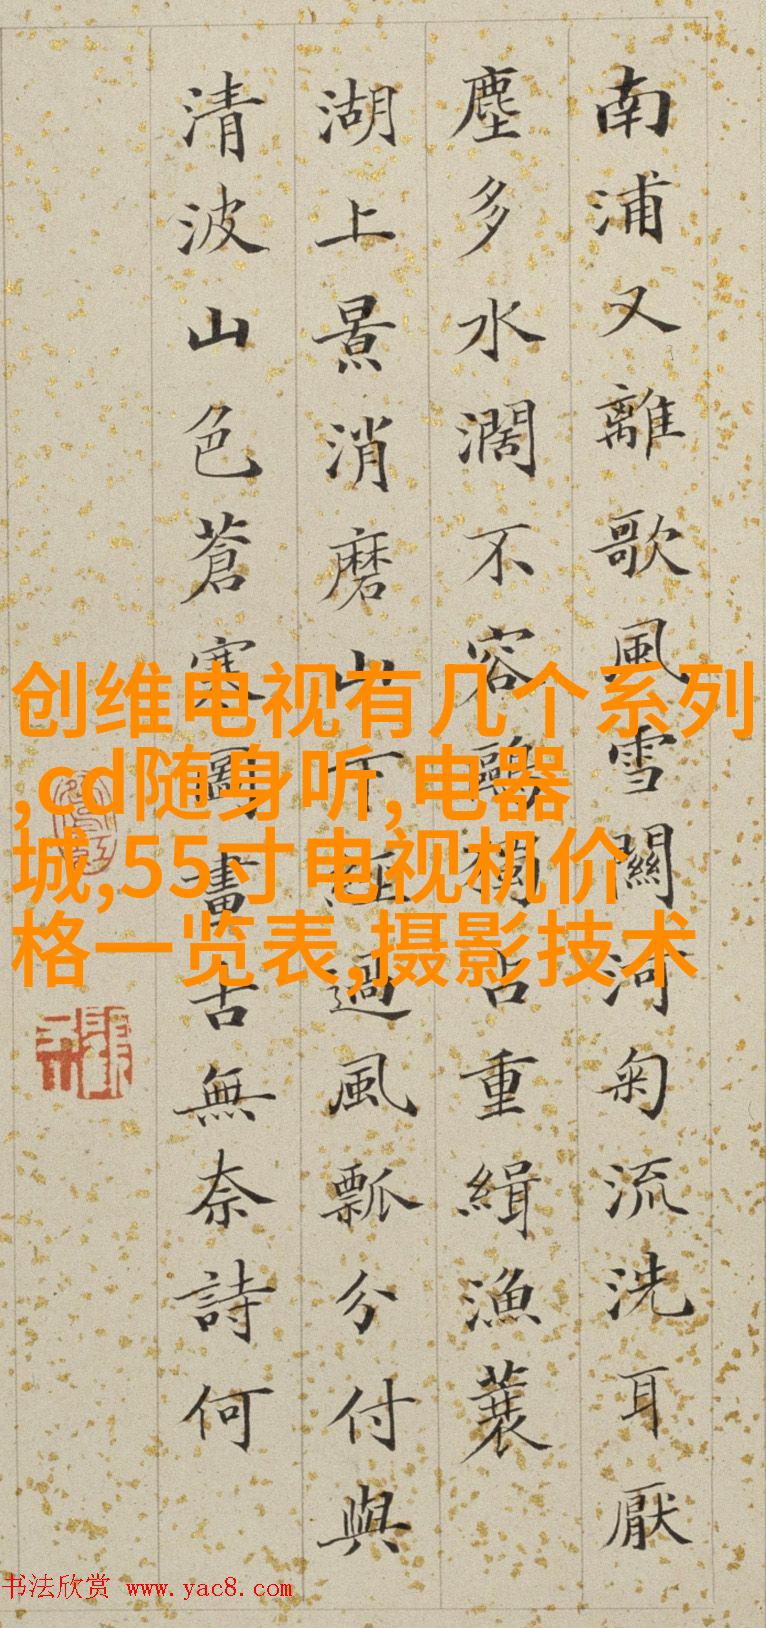 南浦又離歌風雪關河匊流洗耳厭
塵多水濶不容鷗獨占重緝漁蓑
湖上景消磨山下經過風瓢分付與
清波山色蒼寒圖畫古無奈詩何
创维电视有几个系列
,cd随身听,电器
城,55寸电视机价
格一览表,摄影技术
书法欣赏 www.yac8.com